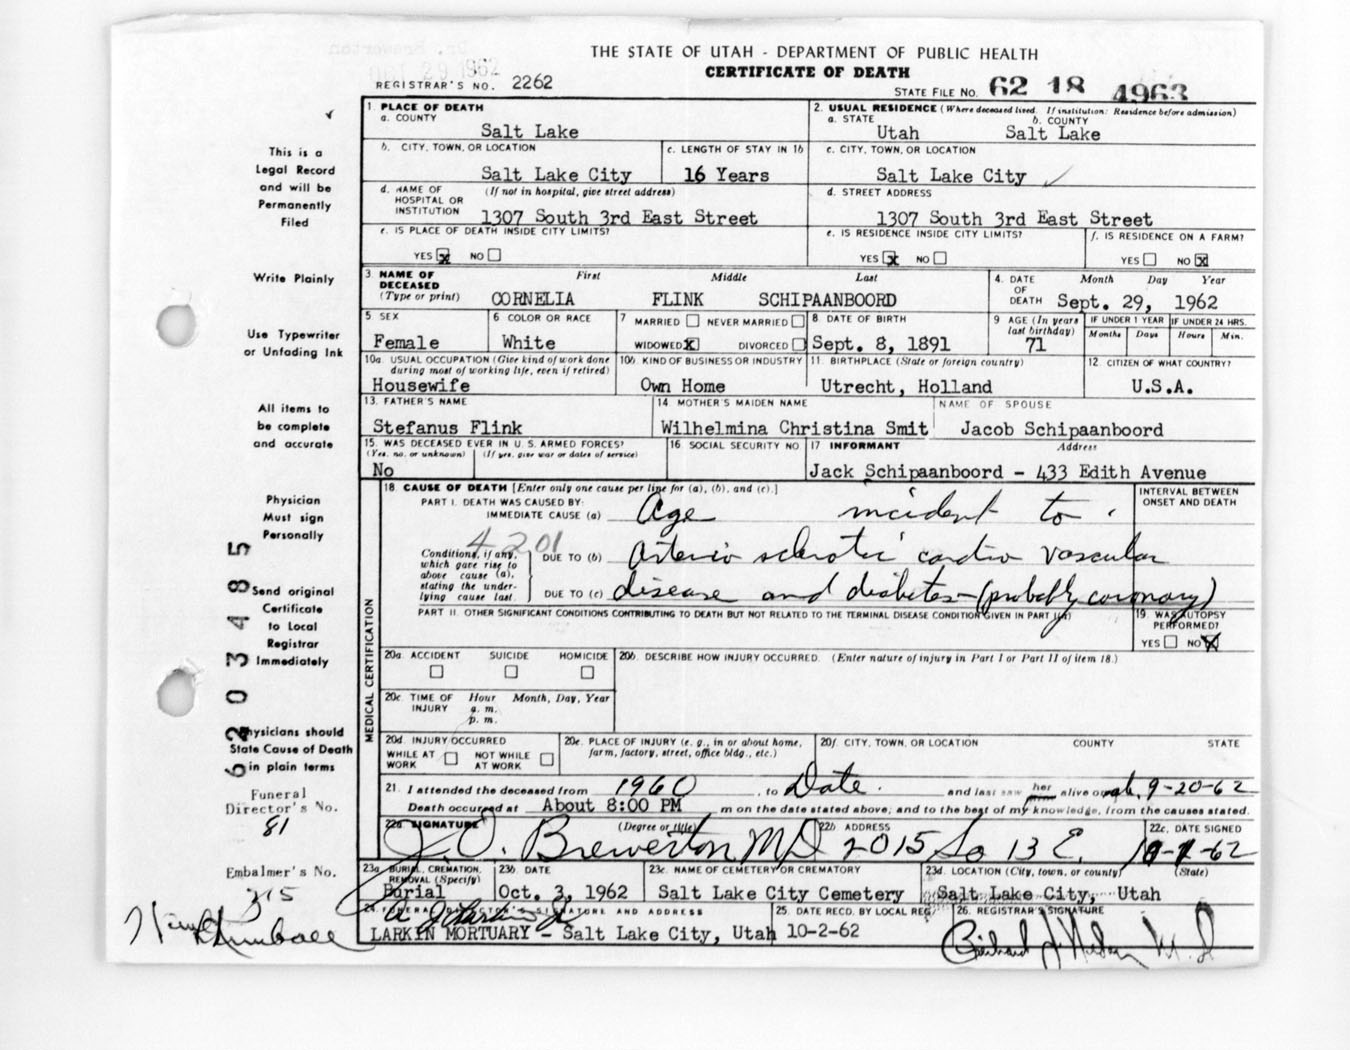 THE STATE OF UTAH - DEPARTMENT OF PUBLIC HEALTH
CERTIFICATE OF DEATH
OCT 29 1962
REGISTRAR'S NO. 2262
STATE FILE NO. 62 18 4963
1. PLACE OF DEATH
a. COUNTY
Salt Lake
2. USUAL RESIDENCE (Where deceased lived. If institution: Residence before admission)
a. STATE b. COUNTY
Utah Salt Lake
b. CITY, TOWN, OR LOCATION
Salt Lake City
c. LENGTH OF STAY IN 1b
16 Years
c. CITY, TOWN, OR LOCATION
Salt Lake City
d. NAME OF HOSPITAL OR INSTITUTION (If not in hospital, give street address)
1307 South 3rd East Street
d. STREET ADDRESS
1307 South 3rd East Street
e. IS PLACE OF DEATH INSIDE CITY LIMITS?
YES X NO
e. IS RESIDENCE INSIDE CITY LIMITS?
YES X NO
f. IS RESIDENCE ON A FARM?
YES NO X
3. NAME OF DECEASED (Type or print)
First Middle Last
CORNELIA FLINK SCHIPAANBOORD
4. DATE OF DEATH Month Day Year
Sept. 29, 1962
5 SEX
Female
6 COLOR OR RACE
White
7 MARRIED NEVER MARRIED
WIDOWED X DIVORCED
8 DATE OF BIRTH
Sept. 8, 1891
9 AGE (In years last birthday)
71
IF UNDER 1 YEAR
Months Days
IF UNDER 24 HRS.
Hours Min.
10a. USUAL OCCUPATION (Give kind of work done during most of working life, even if retired)
Housewife
10b. KIND OF BUSINESS OR INDUSTRY
Own Home
11. BIRTHPLACE (State or foreign country)
Utrecht, Holland
12. CITIZEN OF WHAT COUNTRY?
U.S.A.
13. FATHER'S NAME
Stefanus Flink
14 MOTHER'S MAIDEN NAME
Wilhelmina Christina Smit
NAME OF SPOUSE
Jacob Schipaanboord
15. WAS DECEASED EVER IN U. S. ARMED FORCES?
(Yes, no, or unknown) (If yes, give war or dates of service)
No
16 SOCIAL SECURITY NO
17 INFORMANT Address
Jack Schipaanboord - 433 Edith Avenue
MEDICAL CERTIFICATION
18. CAUSE OF DEATH [Enter only one cause per line for (a), (b), and (c).]
PART I. DEATH WAS CAUSED BY:
IMMEDIATE CAUSE (a) Age incident to
4201
Conditions, if any, which gave rise to above cause (a), stating the underlying cause last.
DUE TO (b) Arterio sclerotic cardio vascular
DUE TO (c) disease and diabetes - (probably coronary)
INTERVAL BETWEEN ONSET AND DEATH
PART II. OTHER SIGNIFICANT CONDITIONS CONTRIBUTING TO DEATH BUT NOT RELATED TO THE TERMINAL DISEASE CONDITION GIVEN IN PART I(a)
19. WAS AUTOPSY PERFORMED?
YES NO X
20a. ACCIDENT SUICIDE HOMICIDE
20b. DESCRIBE HOW INJURY OCCURRED. (Enter nature of injury in Part I or Part II of item 18.)
20c. TIME OF INJURY Hour Month, Day, Year
a. m.
p. m.
20d. INJURY OCCURRED
WHILE AT WORK NOT WHILE AT WORK
20e. PLACE OF INJURY (e. g., in or about home, farm, factory, street, office bldg., etc.)
20f. CITY, TOWN, OR LOCATION COUNTY STATE
21. I attended the deceased from 1960, to Date. and last saw her alive on 9-20-62
Death occurred at About 8:00 PM m on the date stated above; and to the best of my knowledge, from the causes stated.
22a SIGNATURE (Degree or title)
J. O. Brewerton MD
22b ADDRESS
2015 So 13 E.
22c. DATE SIGNED
23a BURIAL, CREMATION, REMOVAL (Specify)
Burial
23b. DATE
Oct. 3, 1962
23c. NAME OF CEMETERY OR CREMATORY
Salt Lake City Cemetery
23d. LOCATION (City, town, or county) (State)
Salt Lake City, Utah
24. FUNERAL DIRECTOR'S SIGNATURE AND ADDRESS
LARKIN MORTUARY - Salt Lake City, Utah
25. DATE RECD. BY LOCAL REG.
10-2-62
26. REGISTRAR'S SIGNATURE
This is a
Legal Record
and will be
Permanently
Filed
Write Plainly
Use Typewriter
or Unfading Ink
All items to
be complete
and accurate
Physician
Must sign
Personally
Send original
Certificate
to Local
Registrar
Immediately
Physicians should
State Cause of Death
in plain terms
6203485
Funeral
Director's No.
81
Embalmer's No.
215